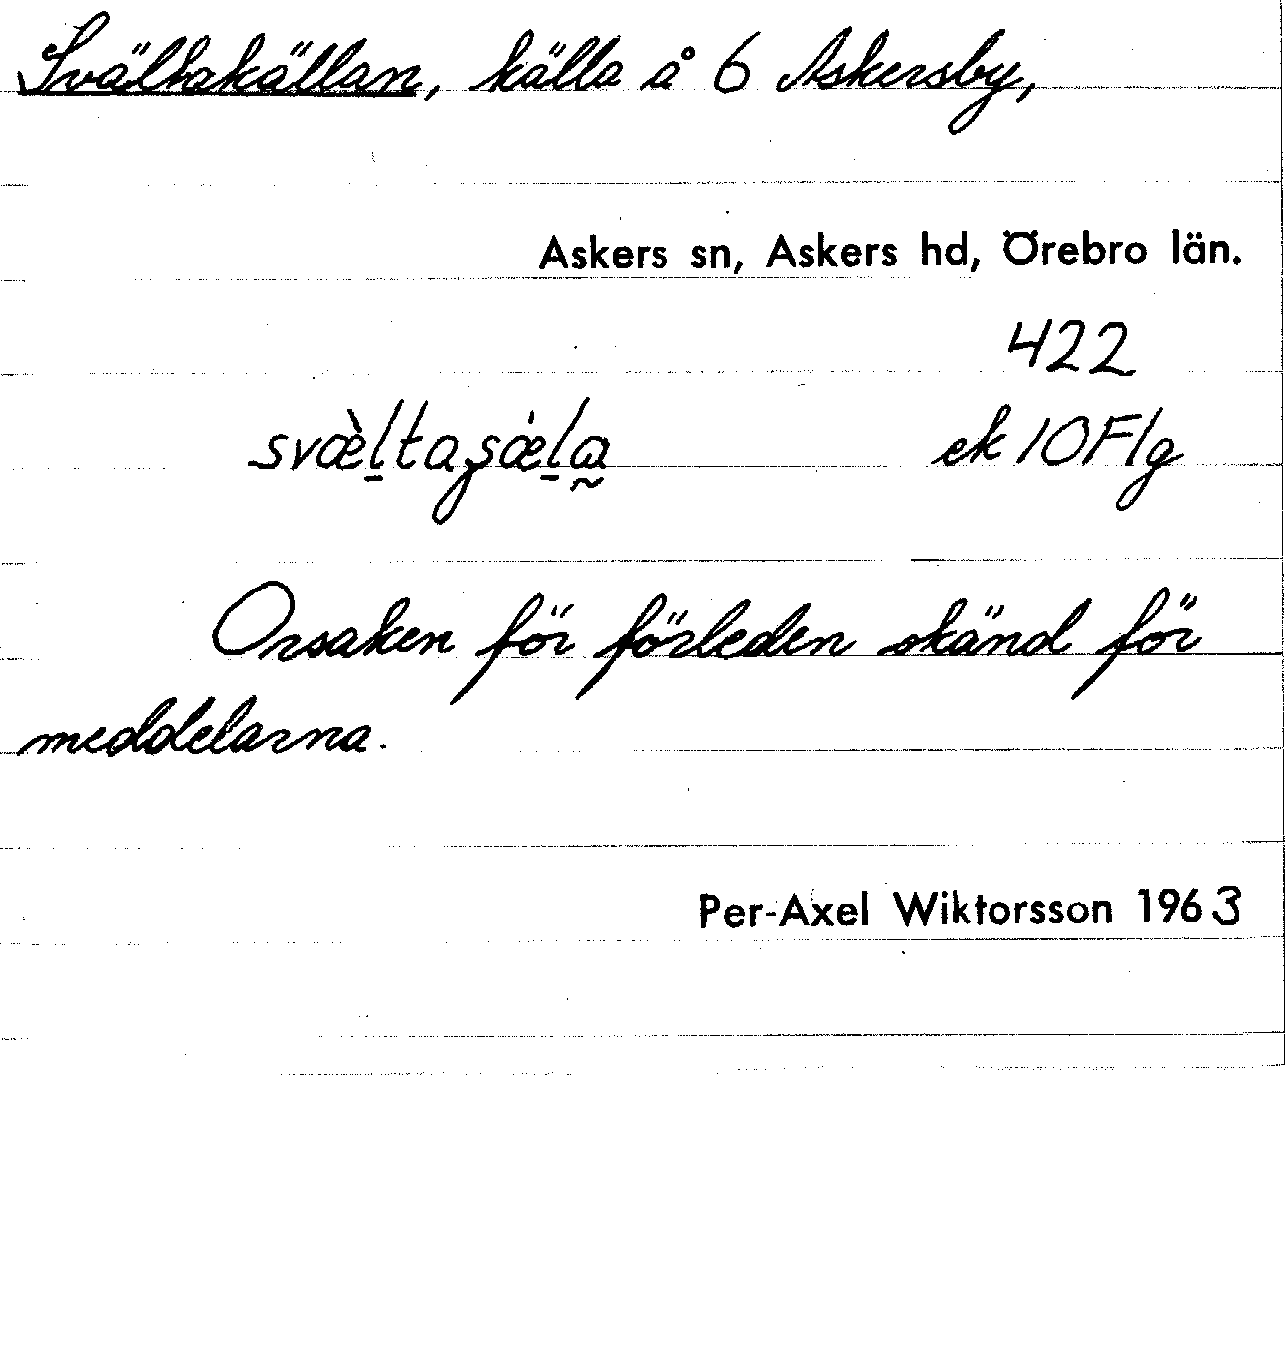 Svältakällan, källa å 6 Askersby,
Askers sn, Askers hd, Örebro län.
422
ek 10F1g
Orsaken för förleden okänd för
meddelarna.
Per-Axel Wiktorsson 1963